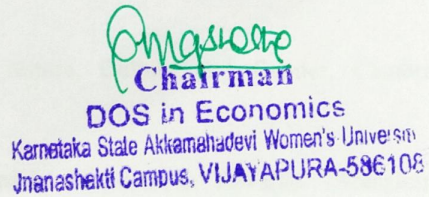 Chairman
DOS in Economics
Karnataka State Akkamahadevi Women's University
Jnanashakti Campus, VIJAYAPURA-586108